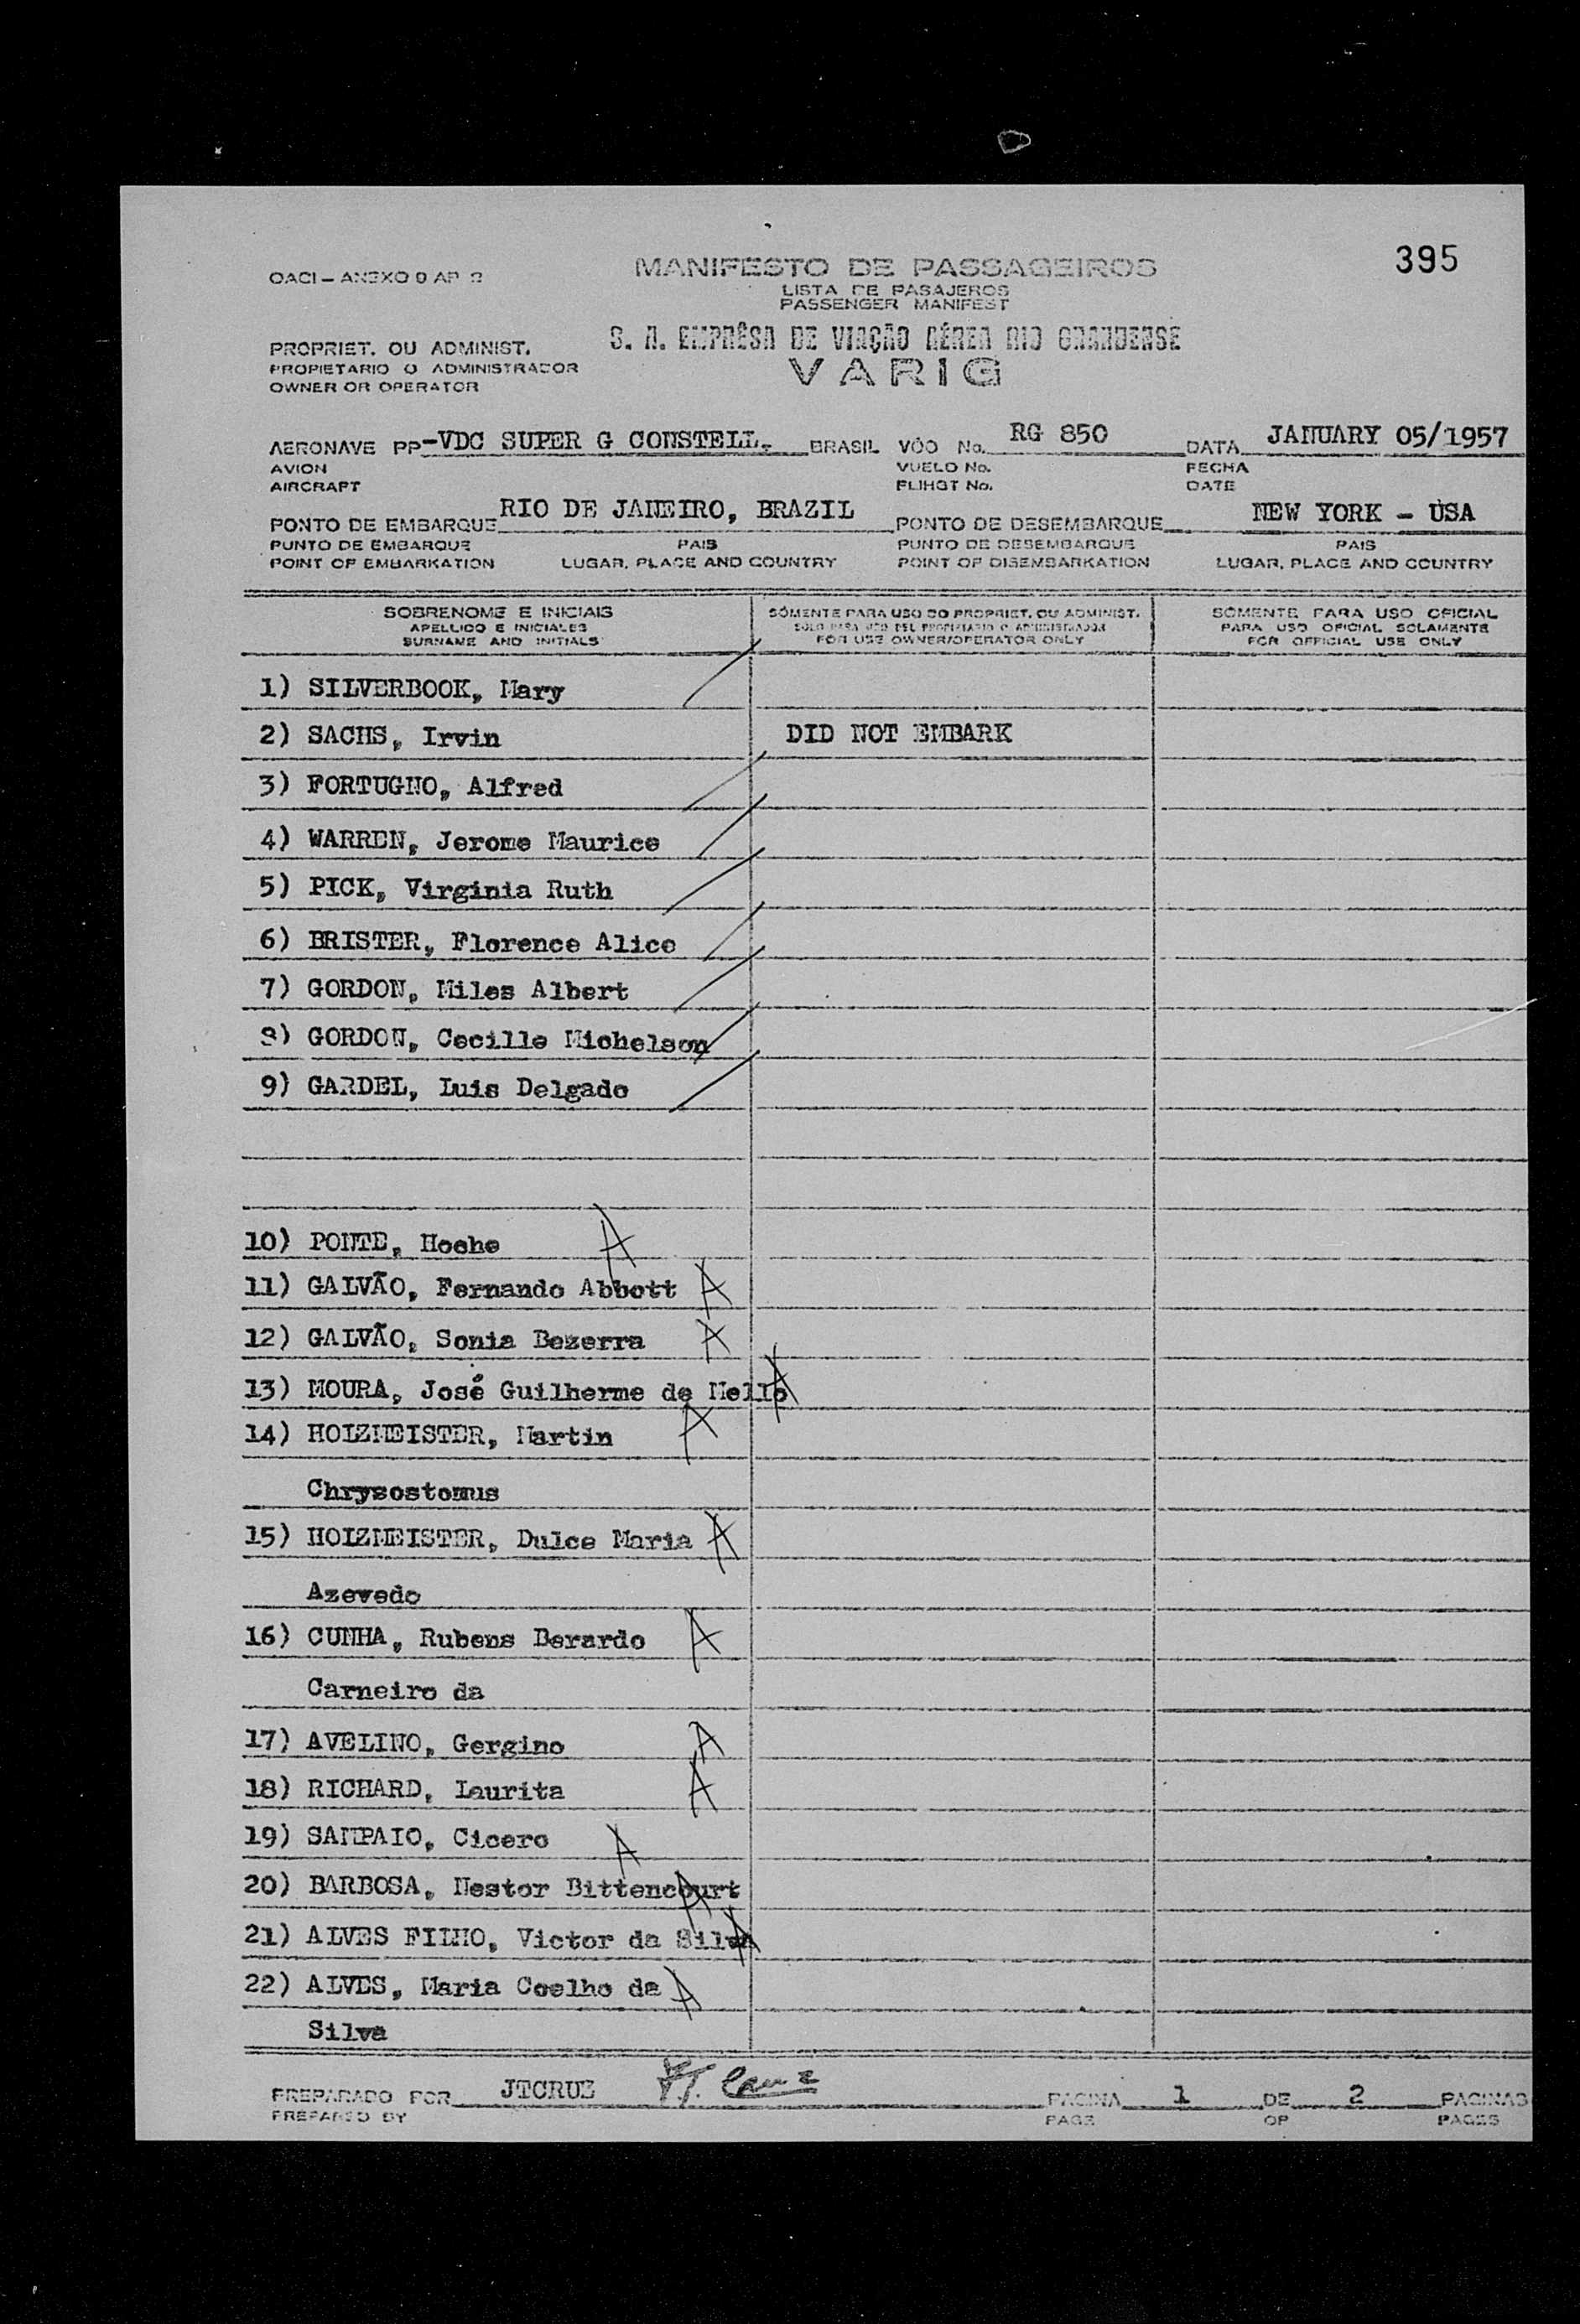 395
OACI – ANEXO 9 AP 3
MANIFESTO DE PASSAGEIROS
LISTA DE PASAJEROS
PASSENGER MANIFEST
S. A. EMPRÊSA DE VIAÇÃO AÉREA RIO GRANDENSE
VARIG
PROPRIET. OU ADMINIST.
PROPIETARIO O ADMINISTRADOR
OWNER OR OPERATOR
AERONAVE PP-VDC SUPER G CONSTELL. BRASIL VÔO No. RG 850 DATA JANUARY 05/1957
AVION VUELO No. FECHA
AIRCRAFT FLIHGT No. DATE
PONTO DE EMBARQUE RIO DE JANEIRO, BRAZIL PONTO DE DESEMBARQUE NEW YORK - USA
PUNTO DE EMBARQUE PAIS PUNTO DE DESEMBARQUE PAIS
POINT OF EMBARKATION LUGAR, PLACE AND COUNTRY POINT OF DISEMBARKATION LUGAR, PLACE AND COUNTRY
SOBRENOME E INICIAIS SÓMENTE PARA USO DO PROPRIET. OU ADMINIST. SÓMENTE PARA USO OFICIAL
APELLIDO E INICIALES SOLO PARA USO DEL PROPIETARIO O ADMINISTRADOR PARA USO OFICIAL SOLAMENTE
SURNAME AND INITIALS FOR USE OWNER/OPERATOR ONLY FOR OFFICIAL USE ONLY
1) SILVERBOOK, Mary
2) SACHS, Irvin DID NOT EMBARK
3) FORTUGNO, Alfred
4) WARREN, Jerome Maurice
5) PICK, Virginia Ruth
6) BRISTER, Florence Alice
7) GORDON, Miles Albert
8) GORDON, Cecille Michelson
9) GARDEL, Luis Delgado
10) PONTE, Hoche
11) GALVÃO, Fernando Abbott
12) GALVÃO, Sonia Bezerra
13) MOURA, José Guilherme de Mello
14) HOLZMEISTER, Martin
Chrysostomus
15) HOLZMEISTER, Dulce Maria
Azevedo
16) CUNHA, Rubens Berardo
Carneiro da
17) AVELINO, Gergino
18) RICHARD, Laurita
19) SAMPAIO, Cicero
20) BARBOSA, Nestor Bittencourt
21) ALVES FILHO, Victor da Silva
22) ALVES, Maria Coelho da
Silva
PREPARADO POR JTCRUZ J.T. Cruz PAGINA 1 DE 2 PAGINAS
PREPARED BY PAGE OF PAGES